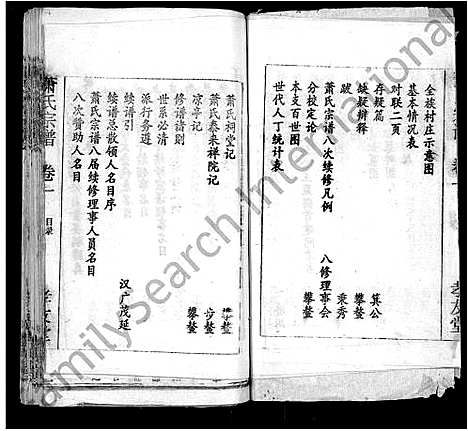 全族村庄示意图
基本情况表
对联二页
存疑篇 箕公
缺疑辩释 攀鳌
跋 秉秀
萧氏宗谱八次续修凡例 八修理事会
分校定论 攀鳌
本支百世图
世代人丁统计表
孝友堂
萧氏祠堂记 攀鳌
萧氏泰来祥院记 步鳌
凉亭记 攀鳌
修谱訪则
世系必清
派行务遵
续谱引 汉广茂延
续谱总散领人名目序
萧氏宗谱八届续修理事人员名目
八次赞助人名目
萧氏宗谱 卷一 目录
FamilySearch International